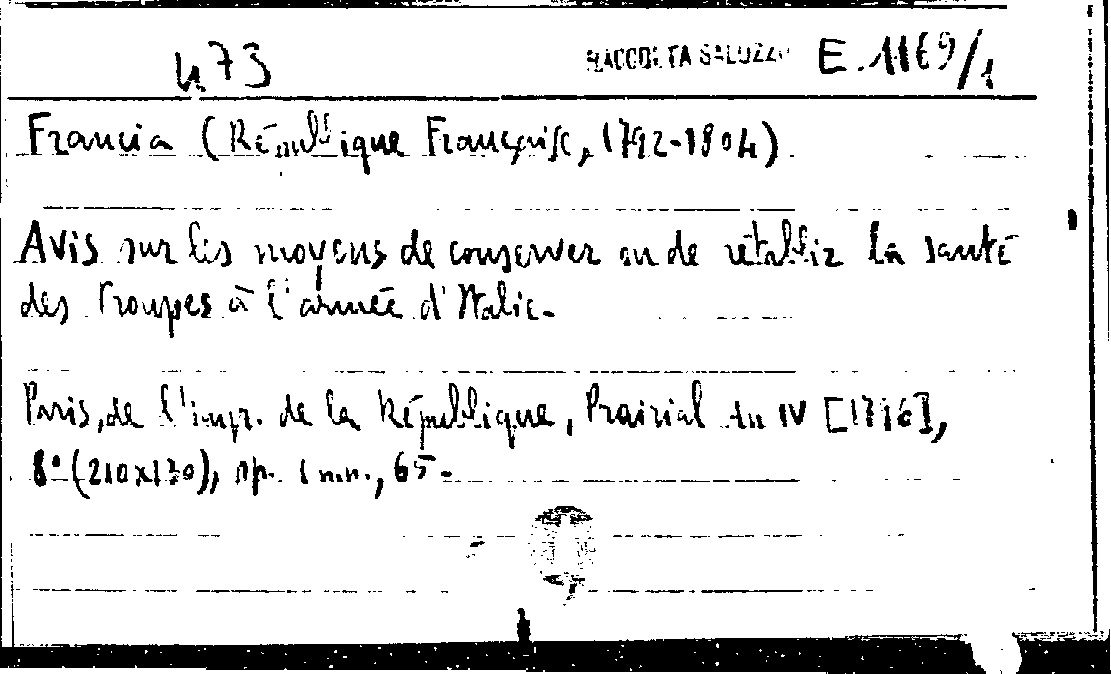 473 RACCOLTA SALUZZO E.1169/1
Francia (République Française, 1792-1804)
Avis sur les moyens de conserver ou de rétablir la santé
des troupes à l'armée d'Italie.
Paris, de l'impr. de la République, Prairial An IV [1796],
8° (210x130), pp. 1 nn., 65.